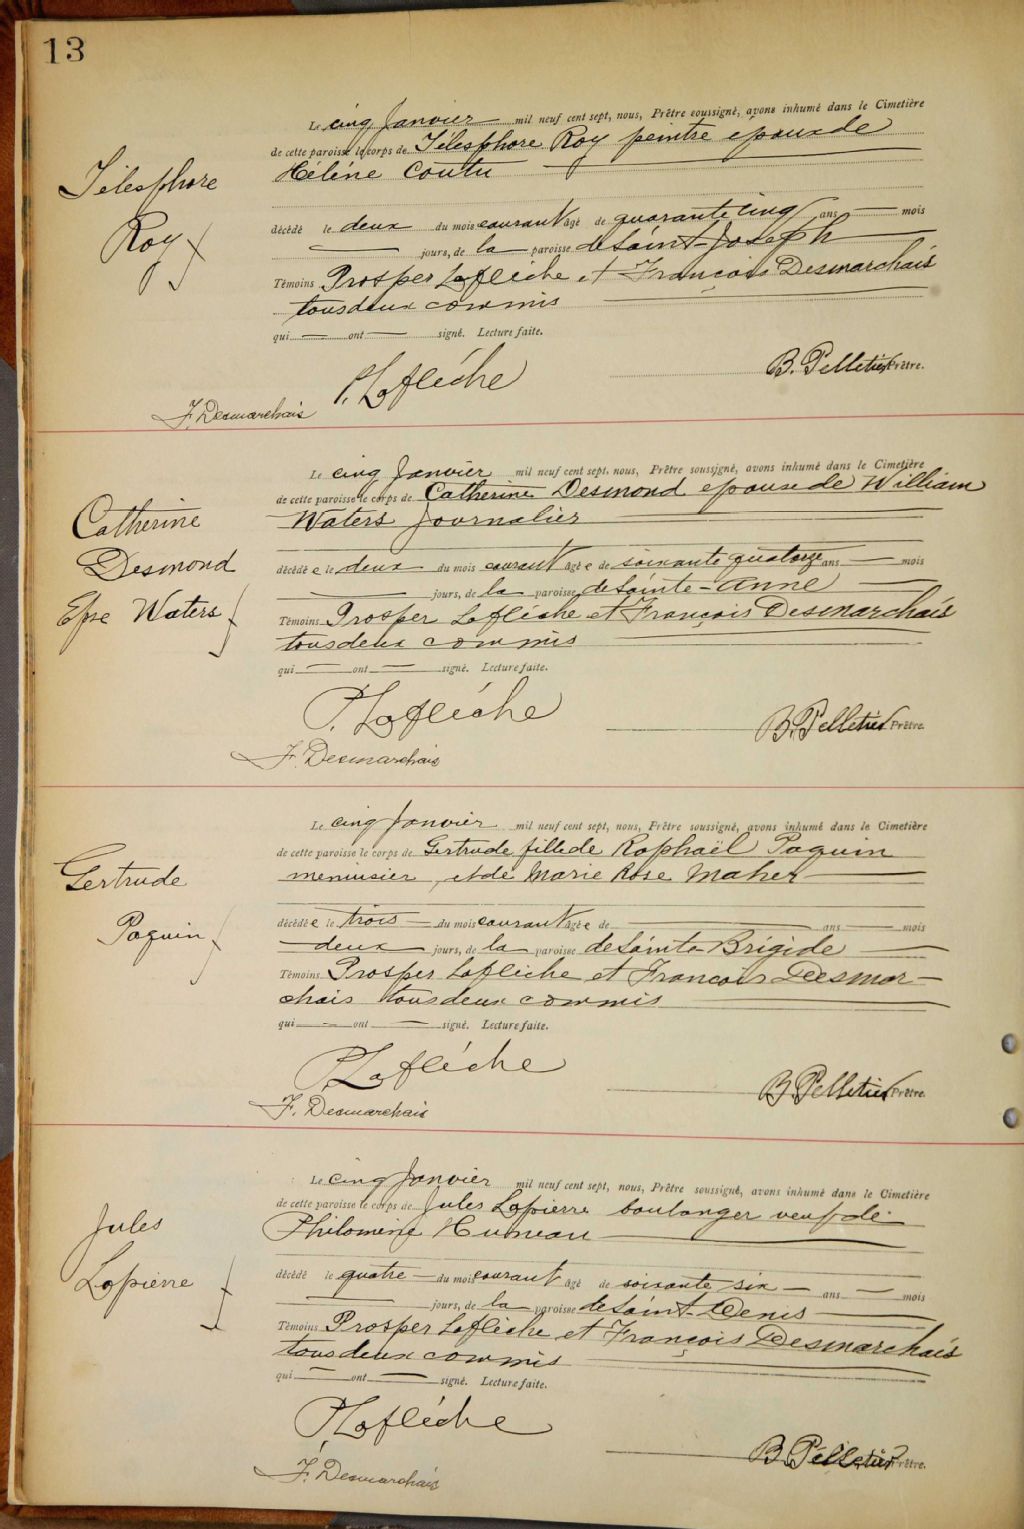 13
Le cinq Janvier mil neuf cent sept, nous, Prêtre soussigné, avons inhumé dans le Cimetière
de cette paroisse le corps de Télesphore Roy peintre epoux de
Héléne Coutu
Télesphore
Roy
décédé le deux du mois courant âgé de quarante cinq ans — mois
— jours, de la paroisse de Saint-Joseph
Témoins Prosper Lafléche et François Desmarchais
tous deux commis
qui — ont — signé. Lecture faite.
P. Lafléche
B. Pelletier Prêtre.
F. Desmarchais
Le cinq Janvier mil neuf cent sept, nous, Prêtre soussigné, avons inhumé dans le Cimetière
de cette paroisse le corps de Catherine Desmond epouse de William
Waters journalier
Catherine
Desmond
Epse Waters
décédée le deux du mois courant âgée de soixante quatorze ans — mois
— jours, de la paroisse de Sainte-Anne
Témoins Prosper Lafléche et François Desmarchais
tous deux commis
qui — ont — signé. Lecture faite.
P. Lafléche
B. Pelletier Prêtre.
F. Desmarchais
Le cinq Janvier mil neuf cent sept, nous, Prêtre soussigné, avons inhumé dans le Cimetière
de cette paroisse le corps de Gertrude fille de Raphaël Paquin
menuisier, et de Marie Rose Maher
Gertrude
Paquin
décédée le trois du mois courant âgée de — ans — mois
deux jours, de la paroisse de Sainte Brigide
Témoins Prosper Lafléche et Francois Desmar-
chais tous deux commis
qui — ont — signé. Lecture faite.
P. Lafléche
B. Pelletier Prêtre.
F. Desmarchais
Le cinq Janvier mil neuf cent sept, nous, Prêtre soussigné, avons inhumé dans le Cimetière
de cette paroisse le corps de Jules Lapierre boulanger veuf de
Philomène Humeau
Jules
Lapierre
décédé le quatre du mois courant âgé de soixante six ans — mois
— jours, de la paroisse de Saint-Denis
Témoins Prosper Lafléche et François Desmarchais
tous deux commis
qui — ont — signé. Lecture faite.
P. Lafléche
B. Pelletier Prêtre.
F. Desmarchais